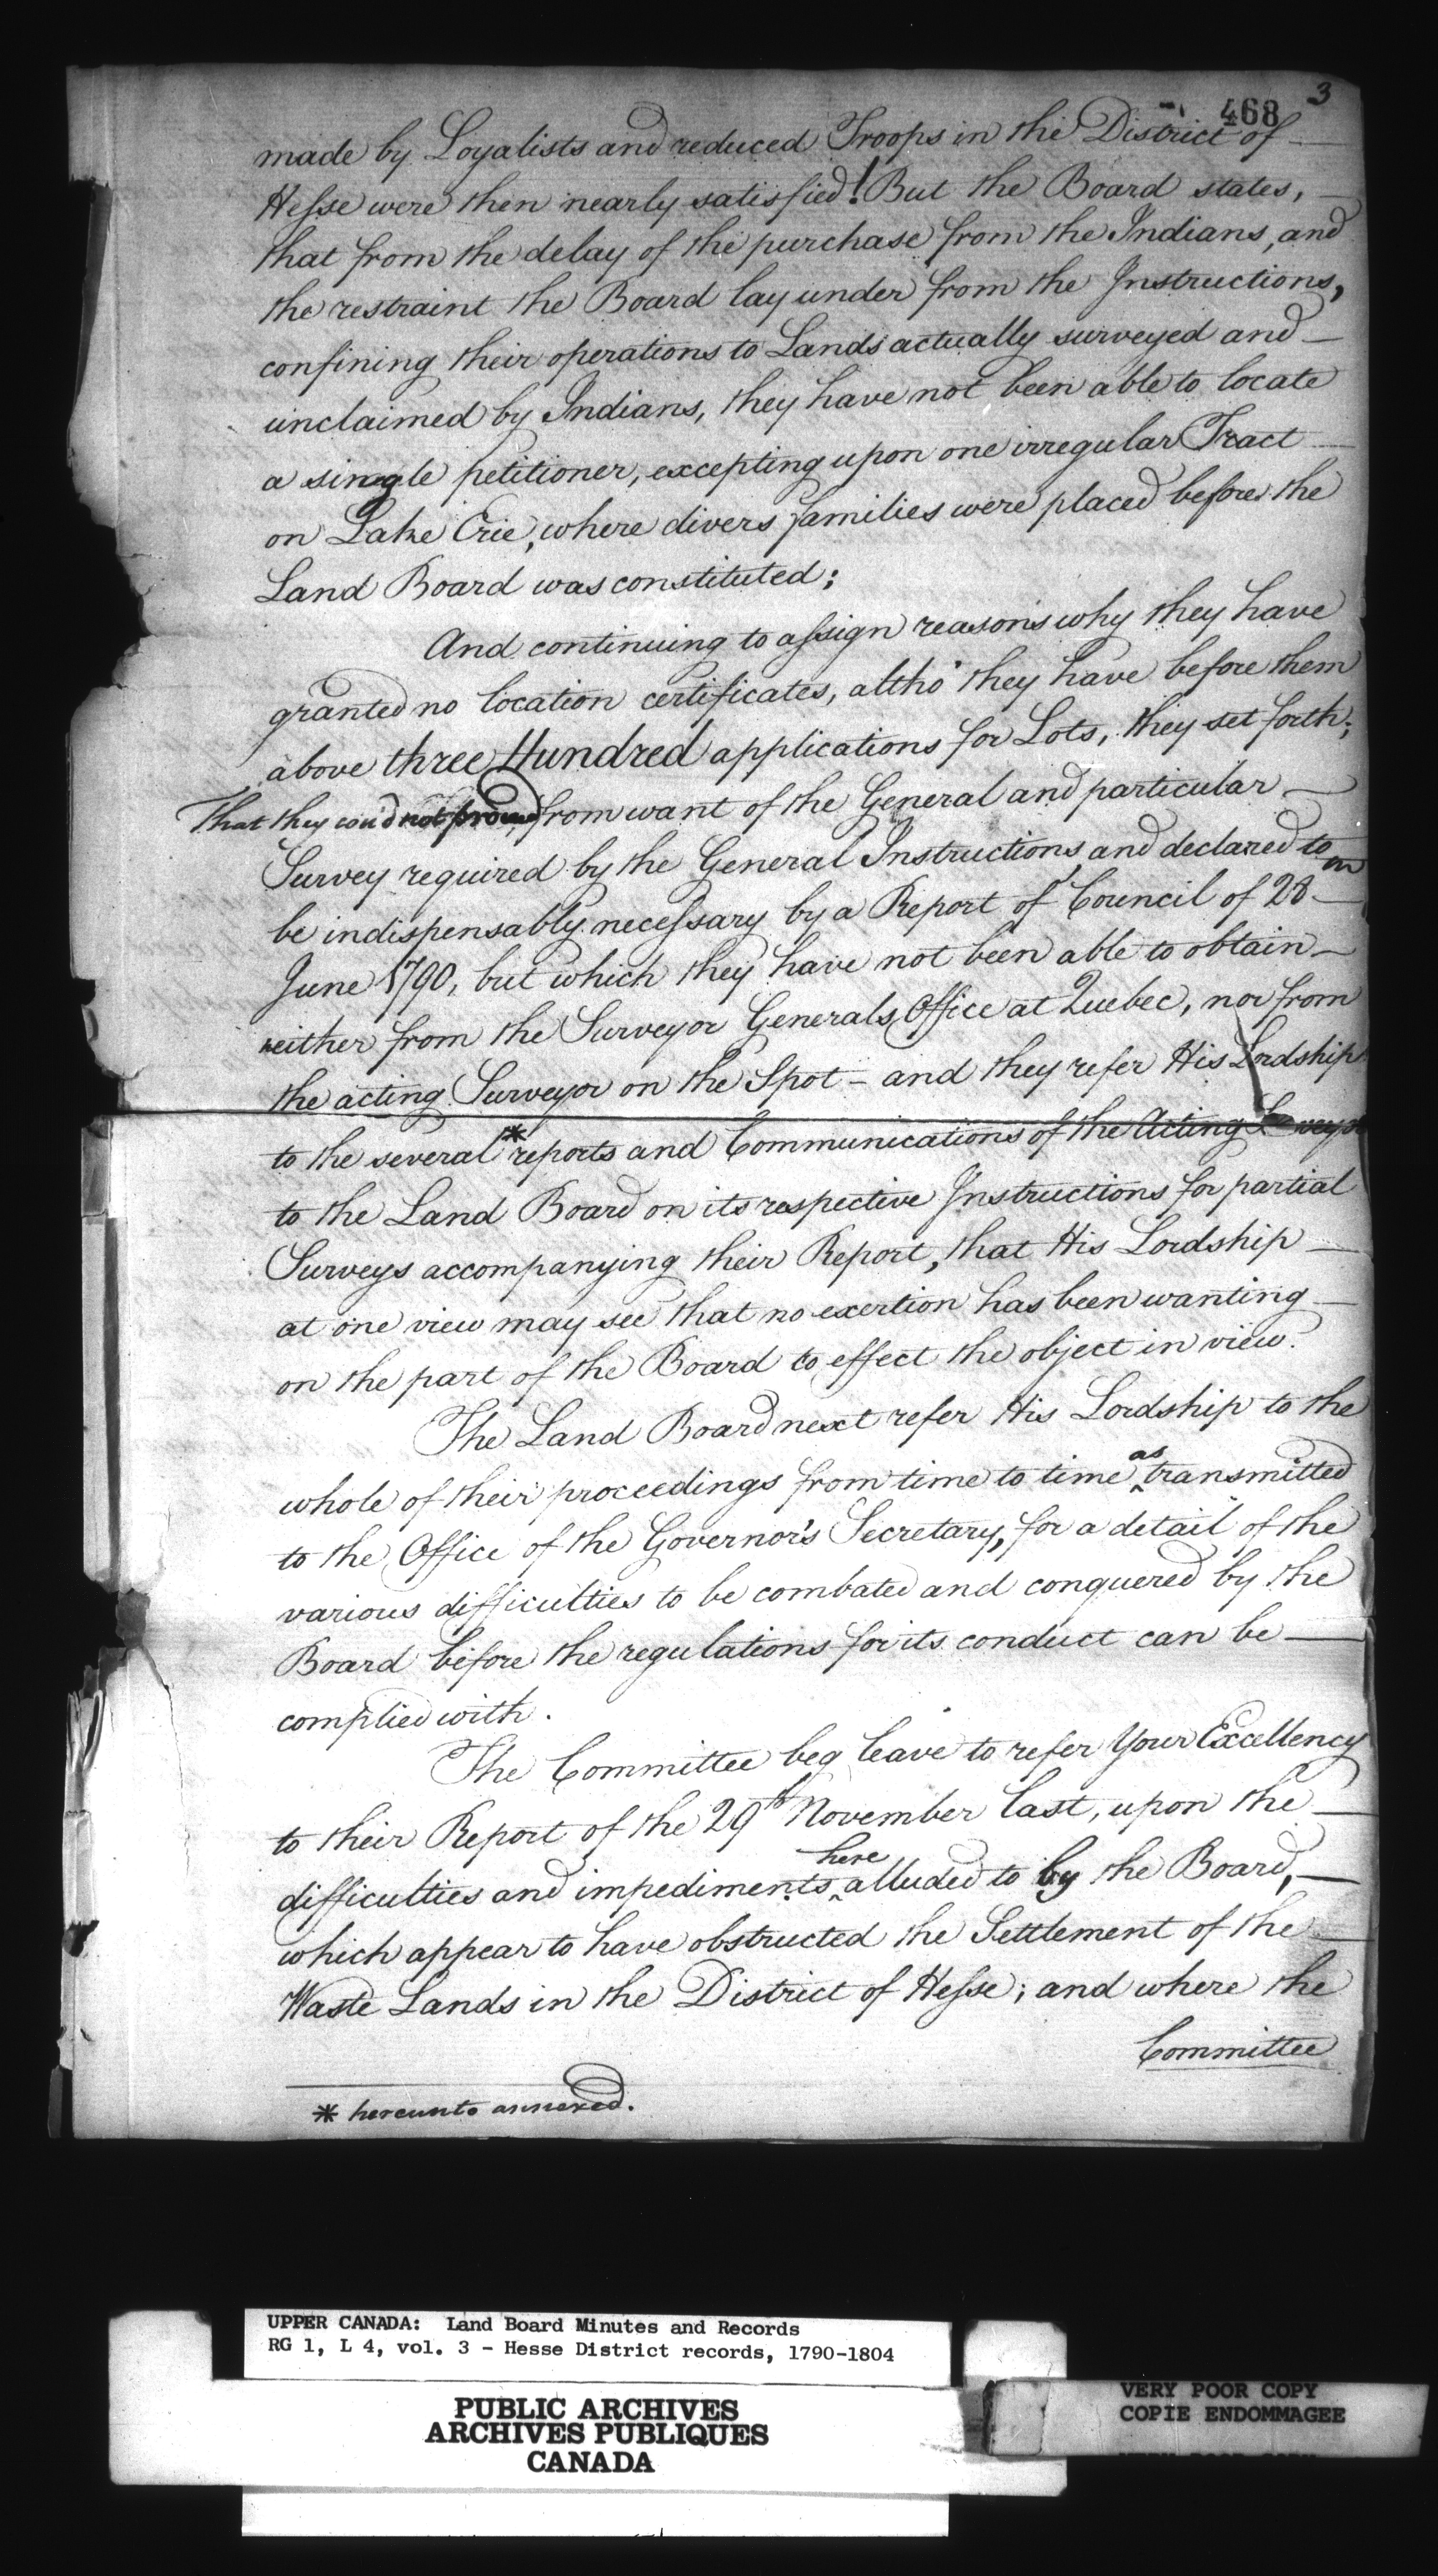 468 3
made by Loyalists and reduced Troops in the District of
Hesse were then nearly satisfied! But the Board states,
that from the delay of the purchase from the Indians, and
the restraint the Board lay under from the Instructions,
confining their operations to Lands actually surveyed and
unclaimed by Indians, they have not been able to locate
a single petitioner, excepting upon one irregular Tract
on Lake Erie, where divers families were placed before the
Land Board was constituted;
And continuing to assign reasons why they have
granted no location certificates, altho' they have before them
above three Hundred applications for Lots, they set forth;
That they could not proceed, from want of the General and particular
Survey required by the General Instructions, and declared to
be indispensably necessary by a Report of Council of 28th
June 1790, but which they have not been able to obtain
neither from the Surveyor Generals Office at Quebec, nor from
the acting Surveyor on the Spot – and they refer His Lordship
to the several * reports and Communications of the Acting Surveyor
to the Land Board on its respective Instructions for partial
Surveys accompanying their Report, that His Lordship
at one view may see that no exertion has been wanting
on the part of the Board to effect the object in view.
The Land Board next refer His Lordship to the
whole of their proceedings from time to time as transmitted
to the Office of the Governor's Secretary, for a detail of the
various difficulties to be combated and conquered by the
Board before the regulations for its conduct can be
complied with.
The Committee beg leave to refer Your Excellency
to their Report of the 29th November last, upon the
difficulties and impediments here alluded to by the Board,
which appear to have obstructed the Settlement of the
Waste Lands in the District of Hesse; and where the
Committee
* hereunto annexed.
UPPER CANADA: Land Board Minutes and Records
RG 1, L 4, vol. 3 - Hesse District records, 1790-1804
PUBLIC ARCHIVES
ARCHIVES PUBLIQUES
CANADA
VERY POOR COPY
COPIE ENDOMMAGEE